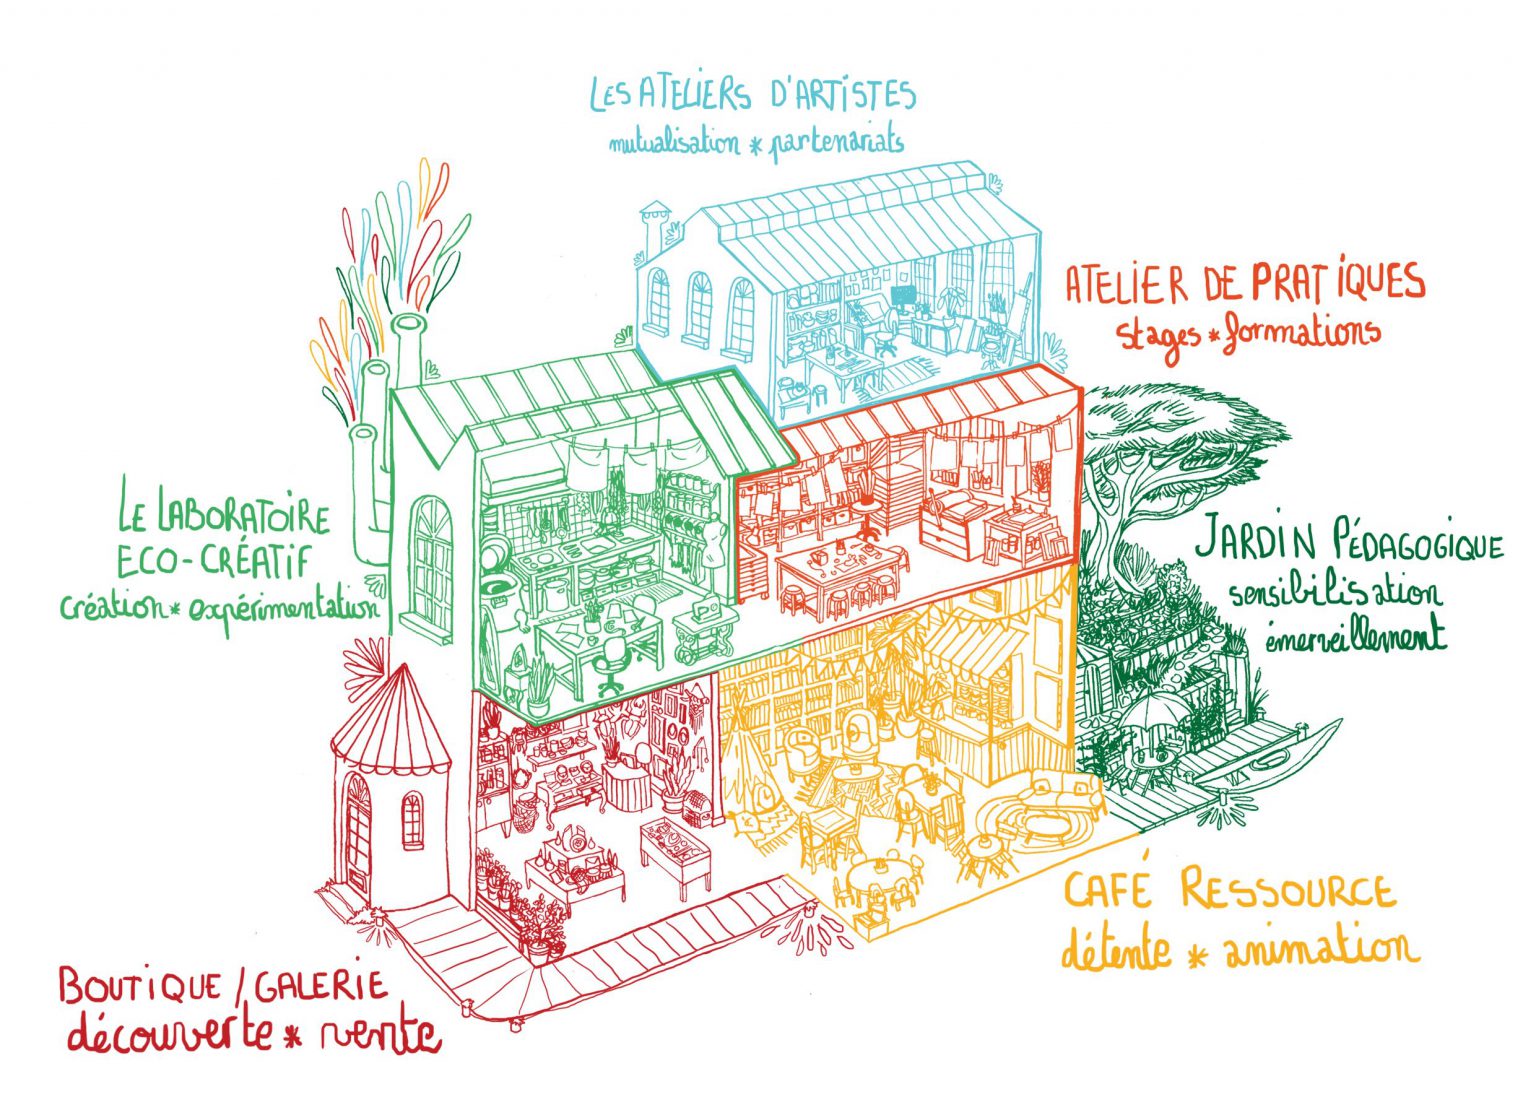 LES ATELIERS D'ARTISTES
mutualisation * partenariats
ATELIER DE PRATIQUES
stages * formations
LE LABORATOIRE
ECO-CRÉATIF
création * expérimentation
JARDIN PÉDAGOGIQUE
sensibilisation
émerveillement
CAFÉ RESSOURCE
détente * animation
BOUTIQUE / GALERIE
découverte * vente